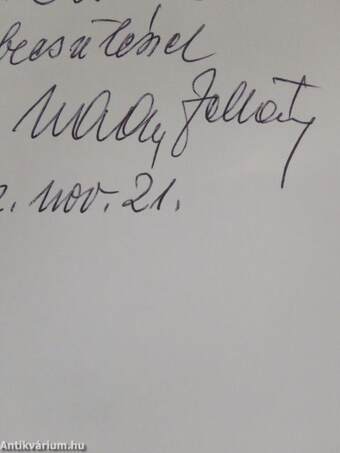 becsüléssel
Nagy
2. nov. 21.
Antikvárium.hu